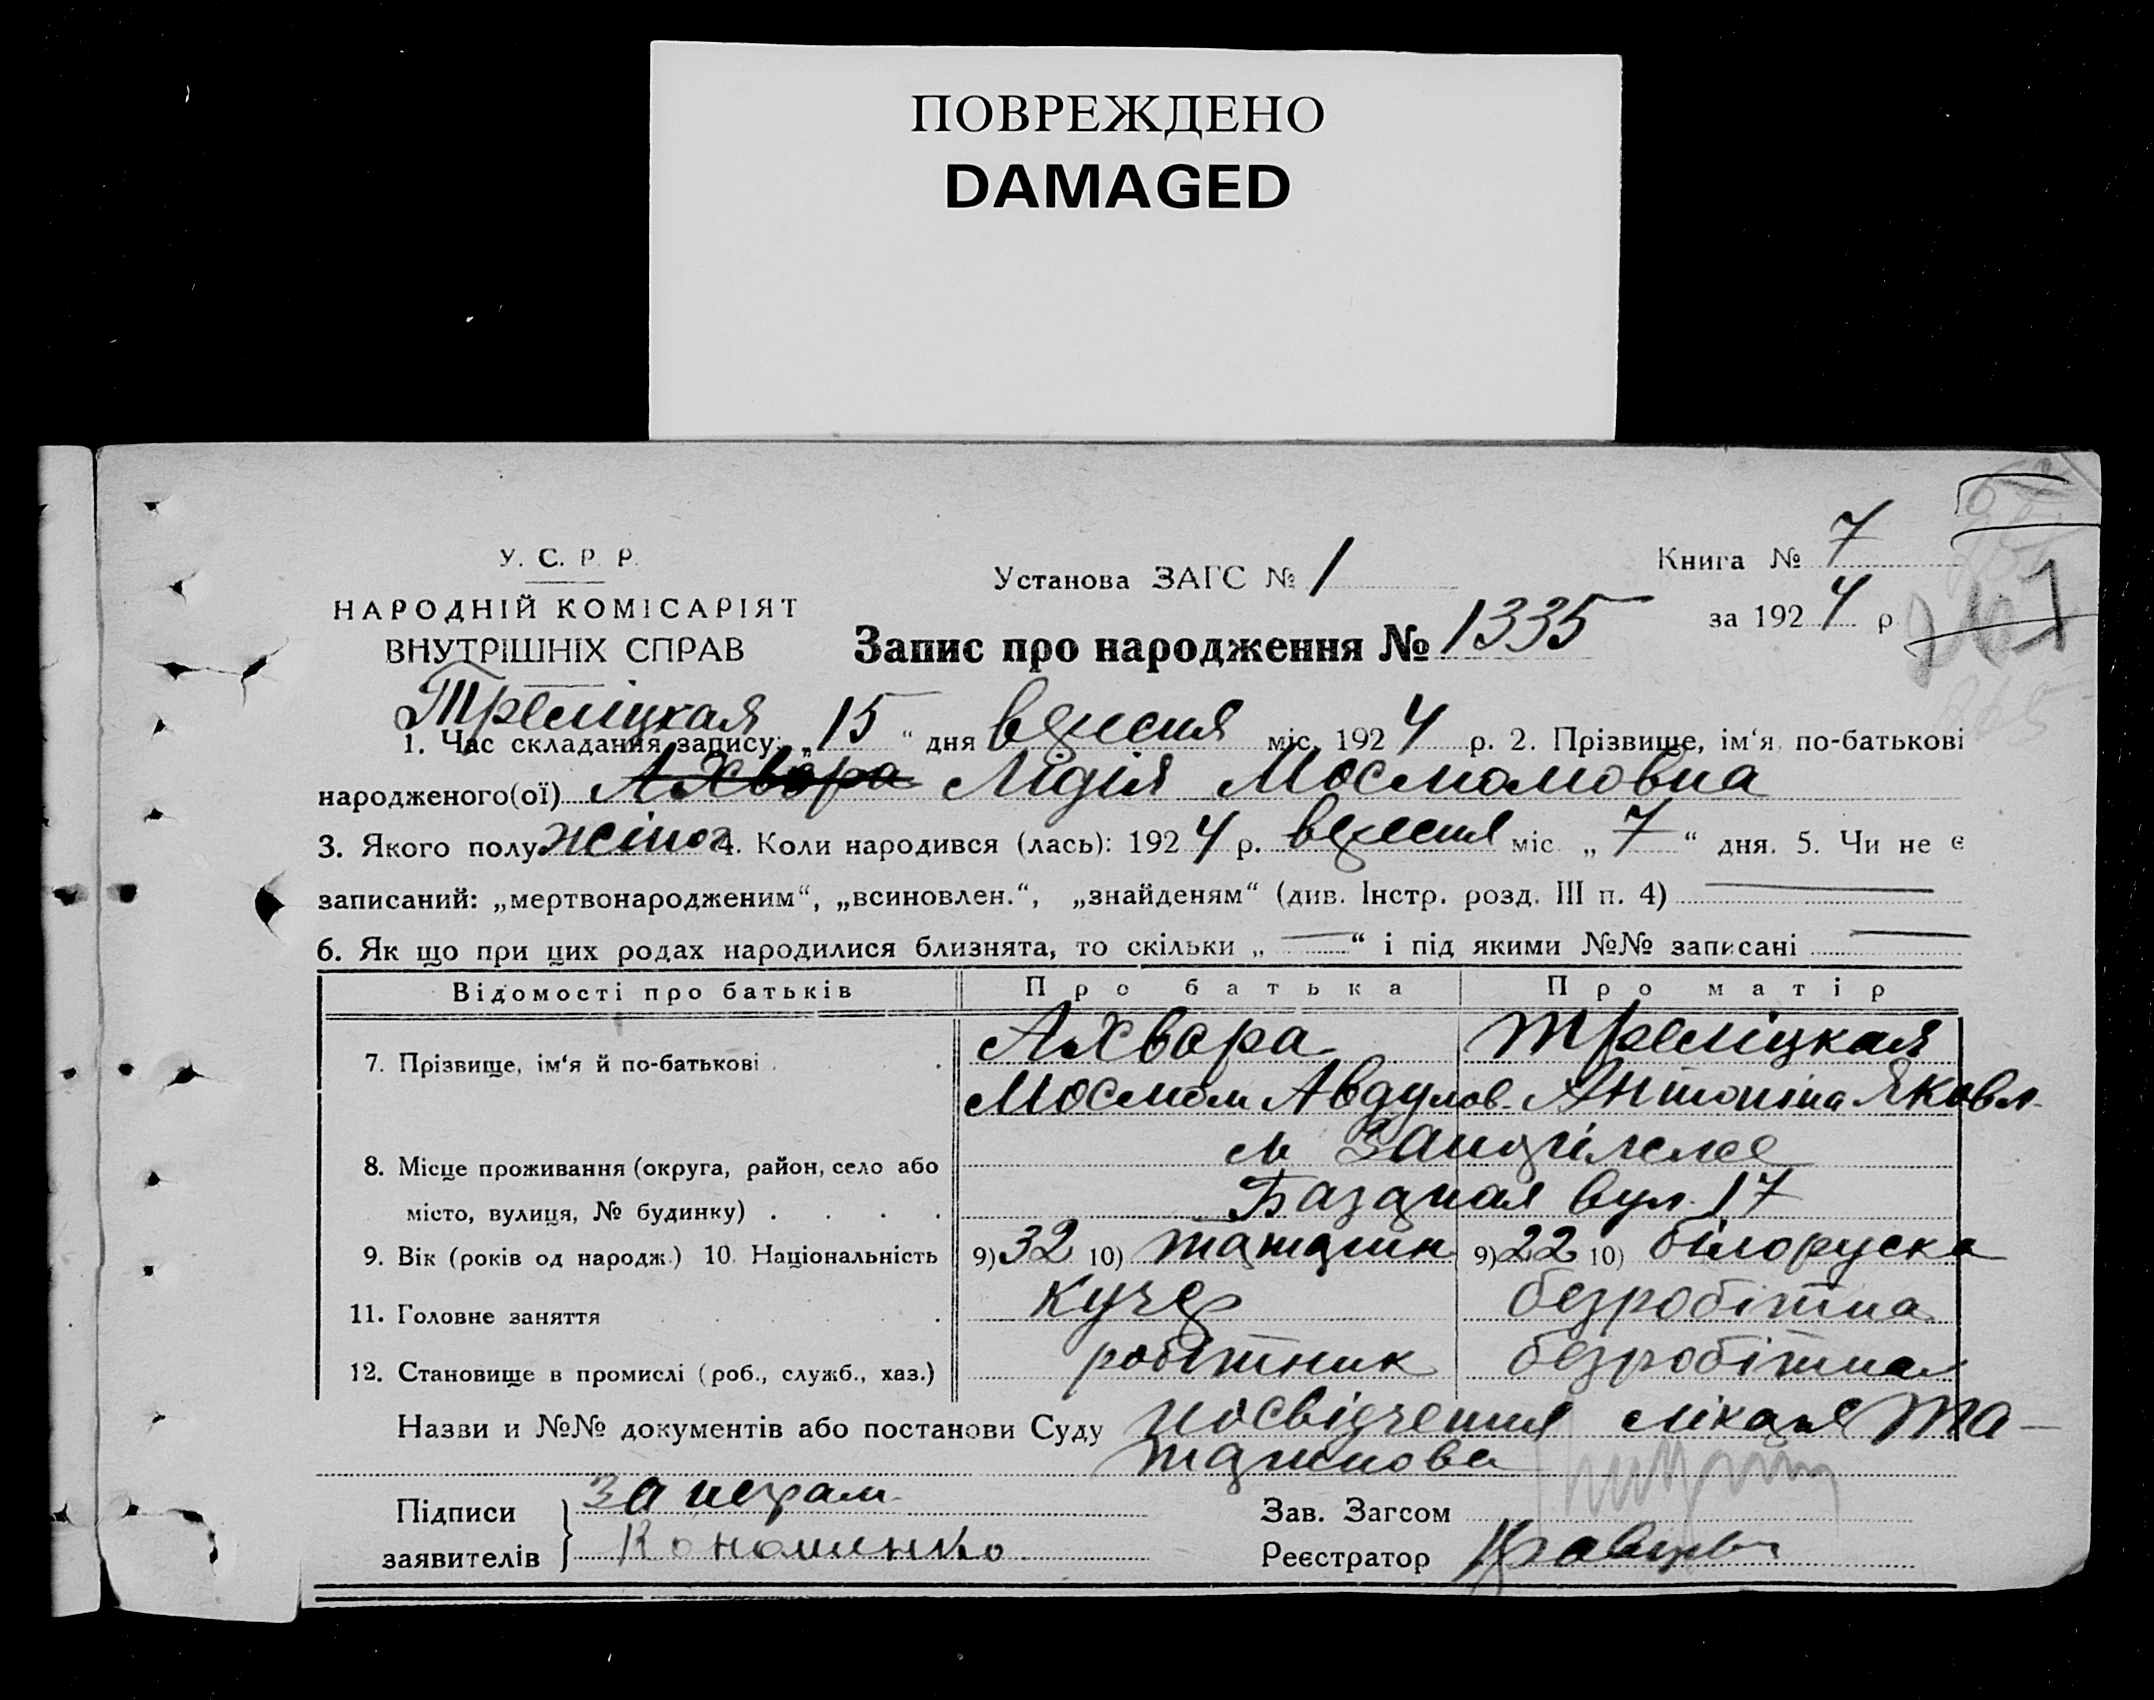 ПОВРЕЖДЕНО
DAMAGED
У. С. Р. Р.
НАРОДНІЙ КОМІСАРІЯТ
ВНУТРІШНІХ СПРАВ
Установа ЗАГС № 1
Книга № 7
за 1924 р
Запис про народження № 1335
Треміцкая
1. Час складання запису: „15“ дня вересня міс. 1924 р. 2. Прізвище, ім‘я, по-батькові
народженого(ої) Ахвора Лідія
3. Якого полу жіноч 4. Коли народився (лась): 1924 р. вересня міс. „7“ дня. 5. Чи не є
записаний: „мертвонародженим“, „всиновлен.“, „знайденям“ (див. Інстр. розд. III п. 4)
6. Як що при цих родах народилися близнята, то скільки „—“ і під якими №№ записані —
Відомості про батьків Про батька Про матір
7. Прізвище, ім‘я й по-батькові Ахвора Треміцкая
Авдулов. Антоніна Яковл.
8. Місце проживання (округа, район, село або
місто, вулиця, № будинку) Базарная вул. 17
9. Вік (років од народж.) 10. Національність 9) 32 10) татарин 9) 22 10) білоруска
11. Головне заняття кучер безробітна
12. Становище в промислі (роб., служб., хаз.) робітник безробітная
Назви и №№ документів або постанови Суду посвідчення лікаря Та-
таринова
Підписи
заявителів Кономенко
Зав. Загсом
Реєстратор